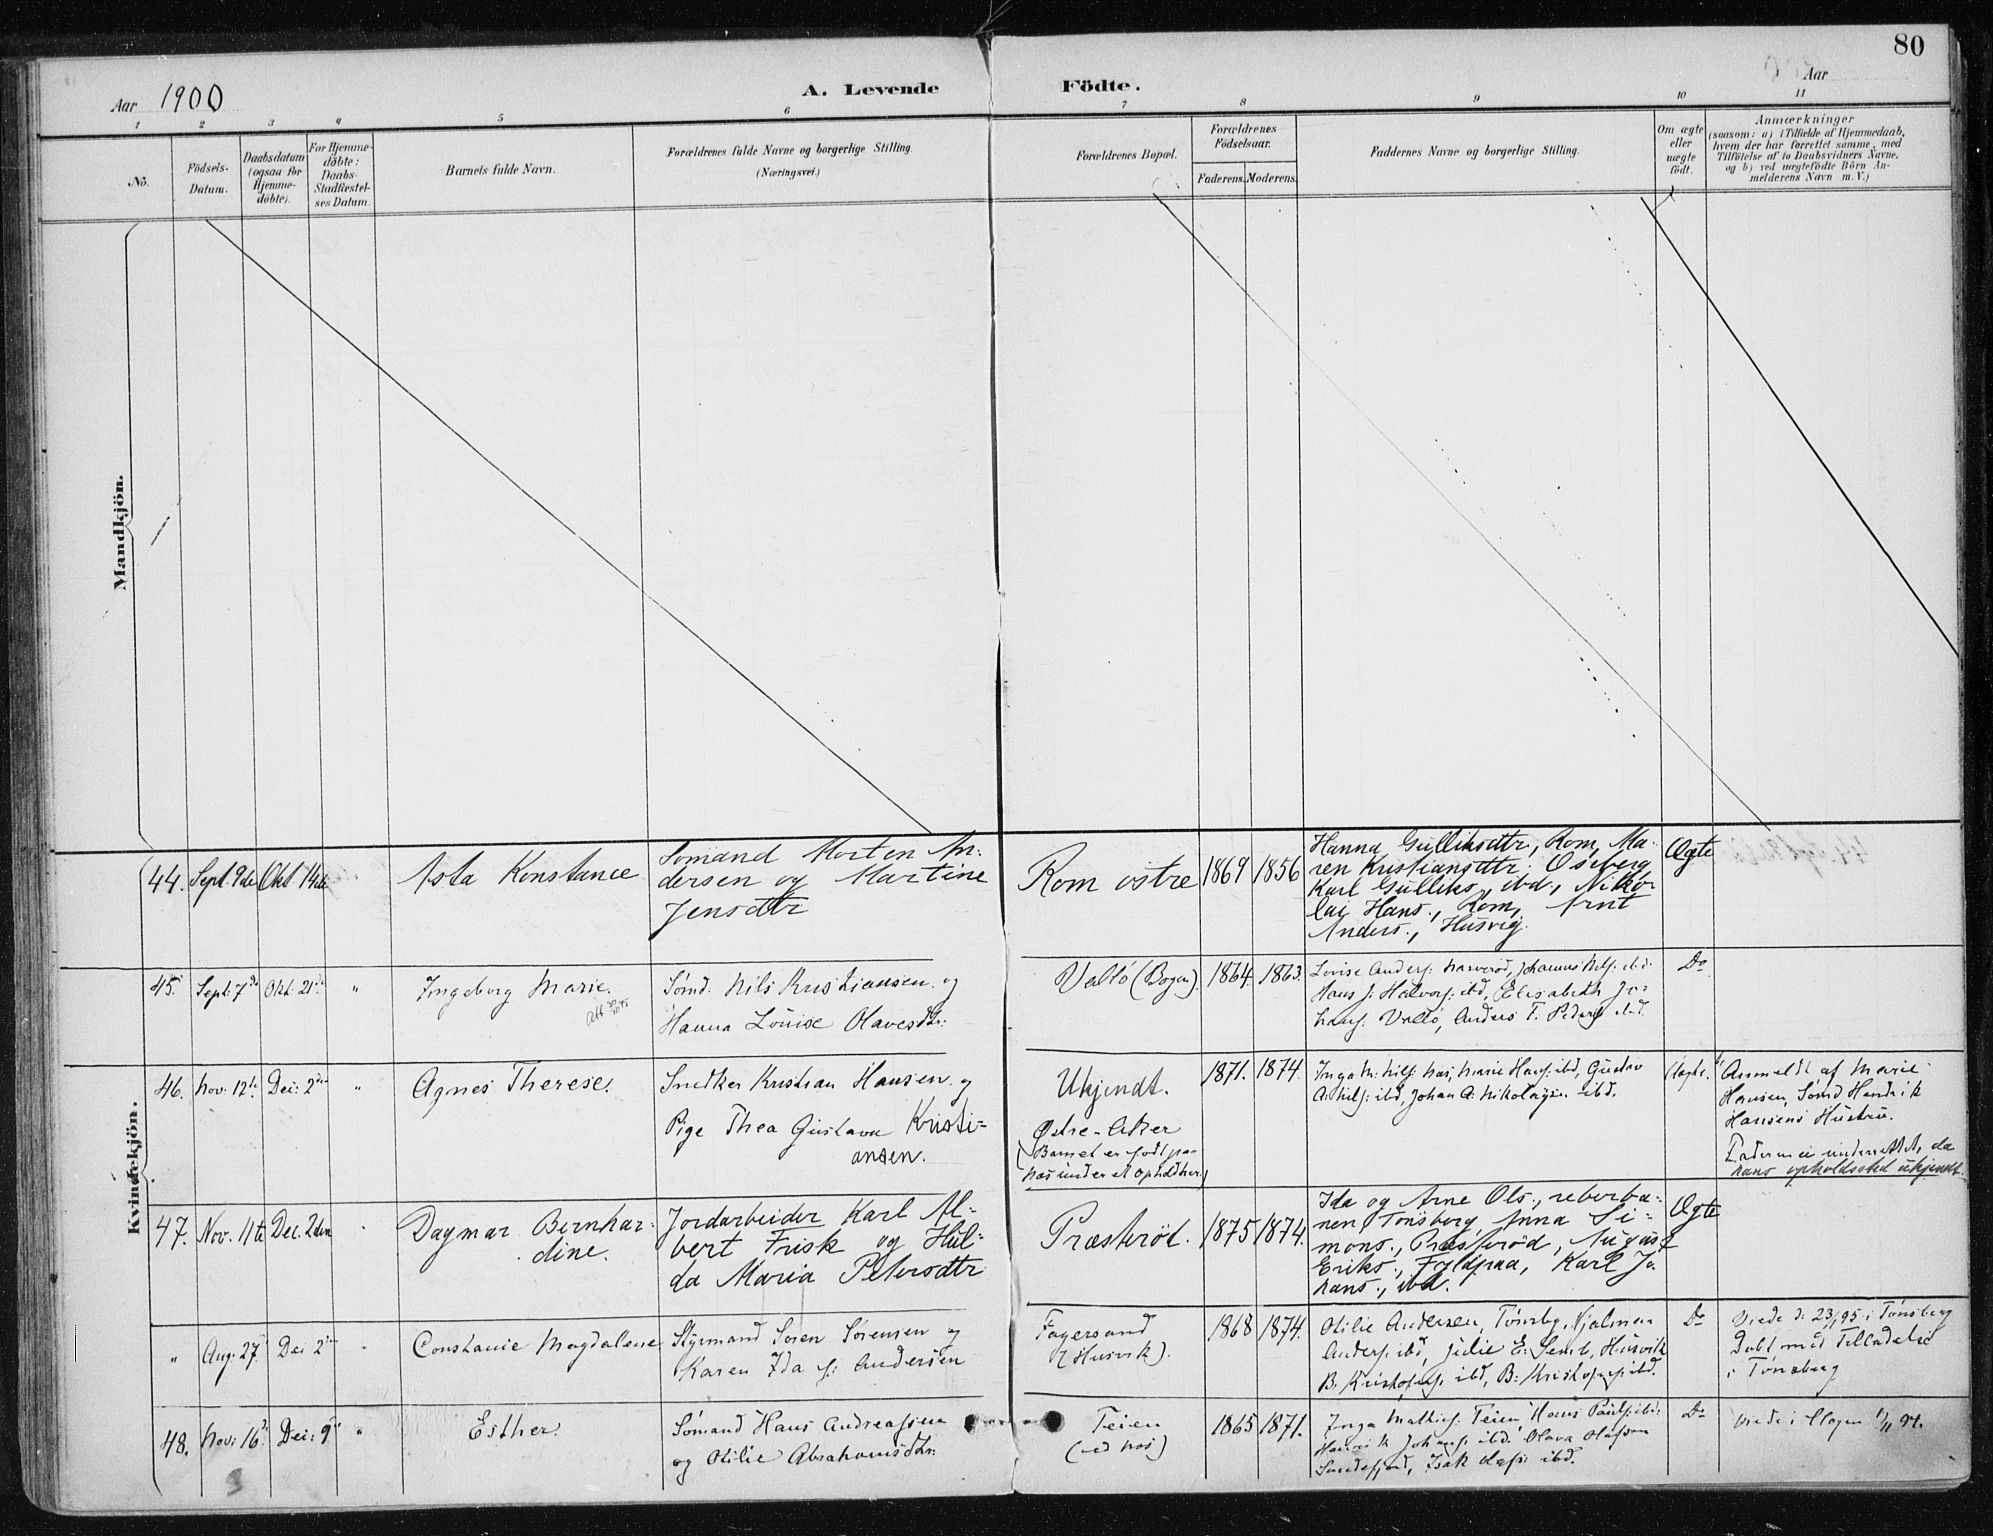 80
Aar 1900
A. Levende Födte.
Aar
1 2 3 4 5 6 7 8 9 10 11
No.
Födsels-
Datum.
Daabsdatum
(ogsaa for
Hjemme-
döbte).
For Hjemme-
döbte:
Daabs-
Stadfæstel-
ses Datum.
Barnets fulde Navn.
Forældrenes fulde Navne og borgerlige Stilling.
(Næringsvei.)
Forældrenes Bopæl.
Forældrenes
Födselsaar.
Faderens. Moderens.
Faddernes Navne og borgerlige Stilling.
Om ægte
eller
uægte
födt.
Anmærkninger
(saasom: a) i Tilfælde af Hjemmedaab,
hvem der har forrettet samme, med
Tilföielse af to Daabsvidners Navne,
og b) ved uægtefödte Börn An-
melderens Navn m. V.)
Mandkjön.
Kvindekjön.
44. Sept. 9de Okt 14de
Asta Konstance
Sømand Morten An-
dersen og Martine
Jensdtr
Rom østre
1869 1856
Hanna Gulliksdtr, Rom, Ma-
ren Kristiansdtr, Oseberg
Karl Gulliks., ibd., Niko-
lai Hans., Rom, Arnt
Anders., Husvig.
Ægte
45. Sept: 7de Okt. 21de "
Ingeborg Marie.
Sømd. Nils Kristiansen og
Hanna Louise Olavesdtr:
Valló (Bogen).
1864. 1863.
Lovise Anders: Narverød, Johannes Nils: ibd.
Hans J: Halvors: ibd, Elisabeth Jo-
hans: Valló, Anders T. Peders: ibd.
Do
46. Nov: 12te Dec: 2den "
Agnes Therese.
Snedker Kristian Hansen og
Pige Thea Gustava Kristi-
ansen.
Ukjendt.
Østre-Aker
(Barnet er født paa
Nøs under et Ophold her)
1871. 1874.
Inga M: Nils: Nøs, Marie Hans: ibd, Gustav
A: Nils: ibd, Johan A: Nikolays: ibd.
Uægte.
Anmeldt af Marie
Hansen, Sømd Hendrik
Hansens Hustru.
Faderen ei underrettet, da
hans opholdssted ukjendt.
47. Nov. 11te Dec. 2den
Dagmar Bernhar-
dine.
Jordarbeider Karl Al-
bert Frisk og Hul-
da Maria Petersdtr
Præsterød.
1875 1874.
Ida og Arne Ols., reberba-
nen, Tønsberg, Anna Si-
mons., Præsterød, August
Eriks., Fyldpaa, Karl Jo-
hans., ibd.
Ægte
" Aug: 27. Dec 2den
Constance Magdalene
Styrmand Soren Sørensen og
Karen Ida f: Andersen
Fagersand
(Husvik).
1868 1874.
Otilie Andersen, Tønsbg, Hjalmar
Anders: ibd, Julie E: Semb, Husvik
B: Kristofers: ibd, B: Kristofers: ibd.
Do
Viede d: 23/ 95 i Tønsberg
Døbt med Tilladelse
i Tønsberg
48. Nov: 16de Dec: 9de "
Esther.
Sømand Hans Andreassen
og Otilie Abrahamsdtr:
Teien
(ved Nøs)
1865 1871.
Inga Mathis: Teien, Hans Pauls: ibd:
Henrik Johans: ibd. Olava Olafsen
Sandefjord, Isak Olafs: ibd.
Do
Viede i Slagen